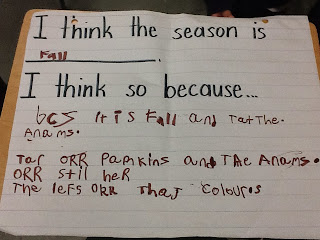 I think the season is
Fall.
I think so because...
bcs it is Fall and Tat The.
Anams.
Tar ORR Pamkins and The Anams.
ORR Stil heR
The lefs ORR That Colours